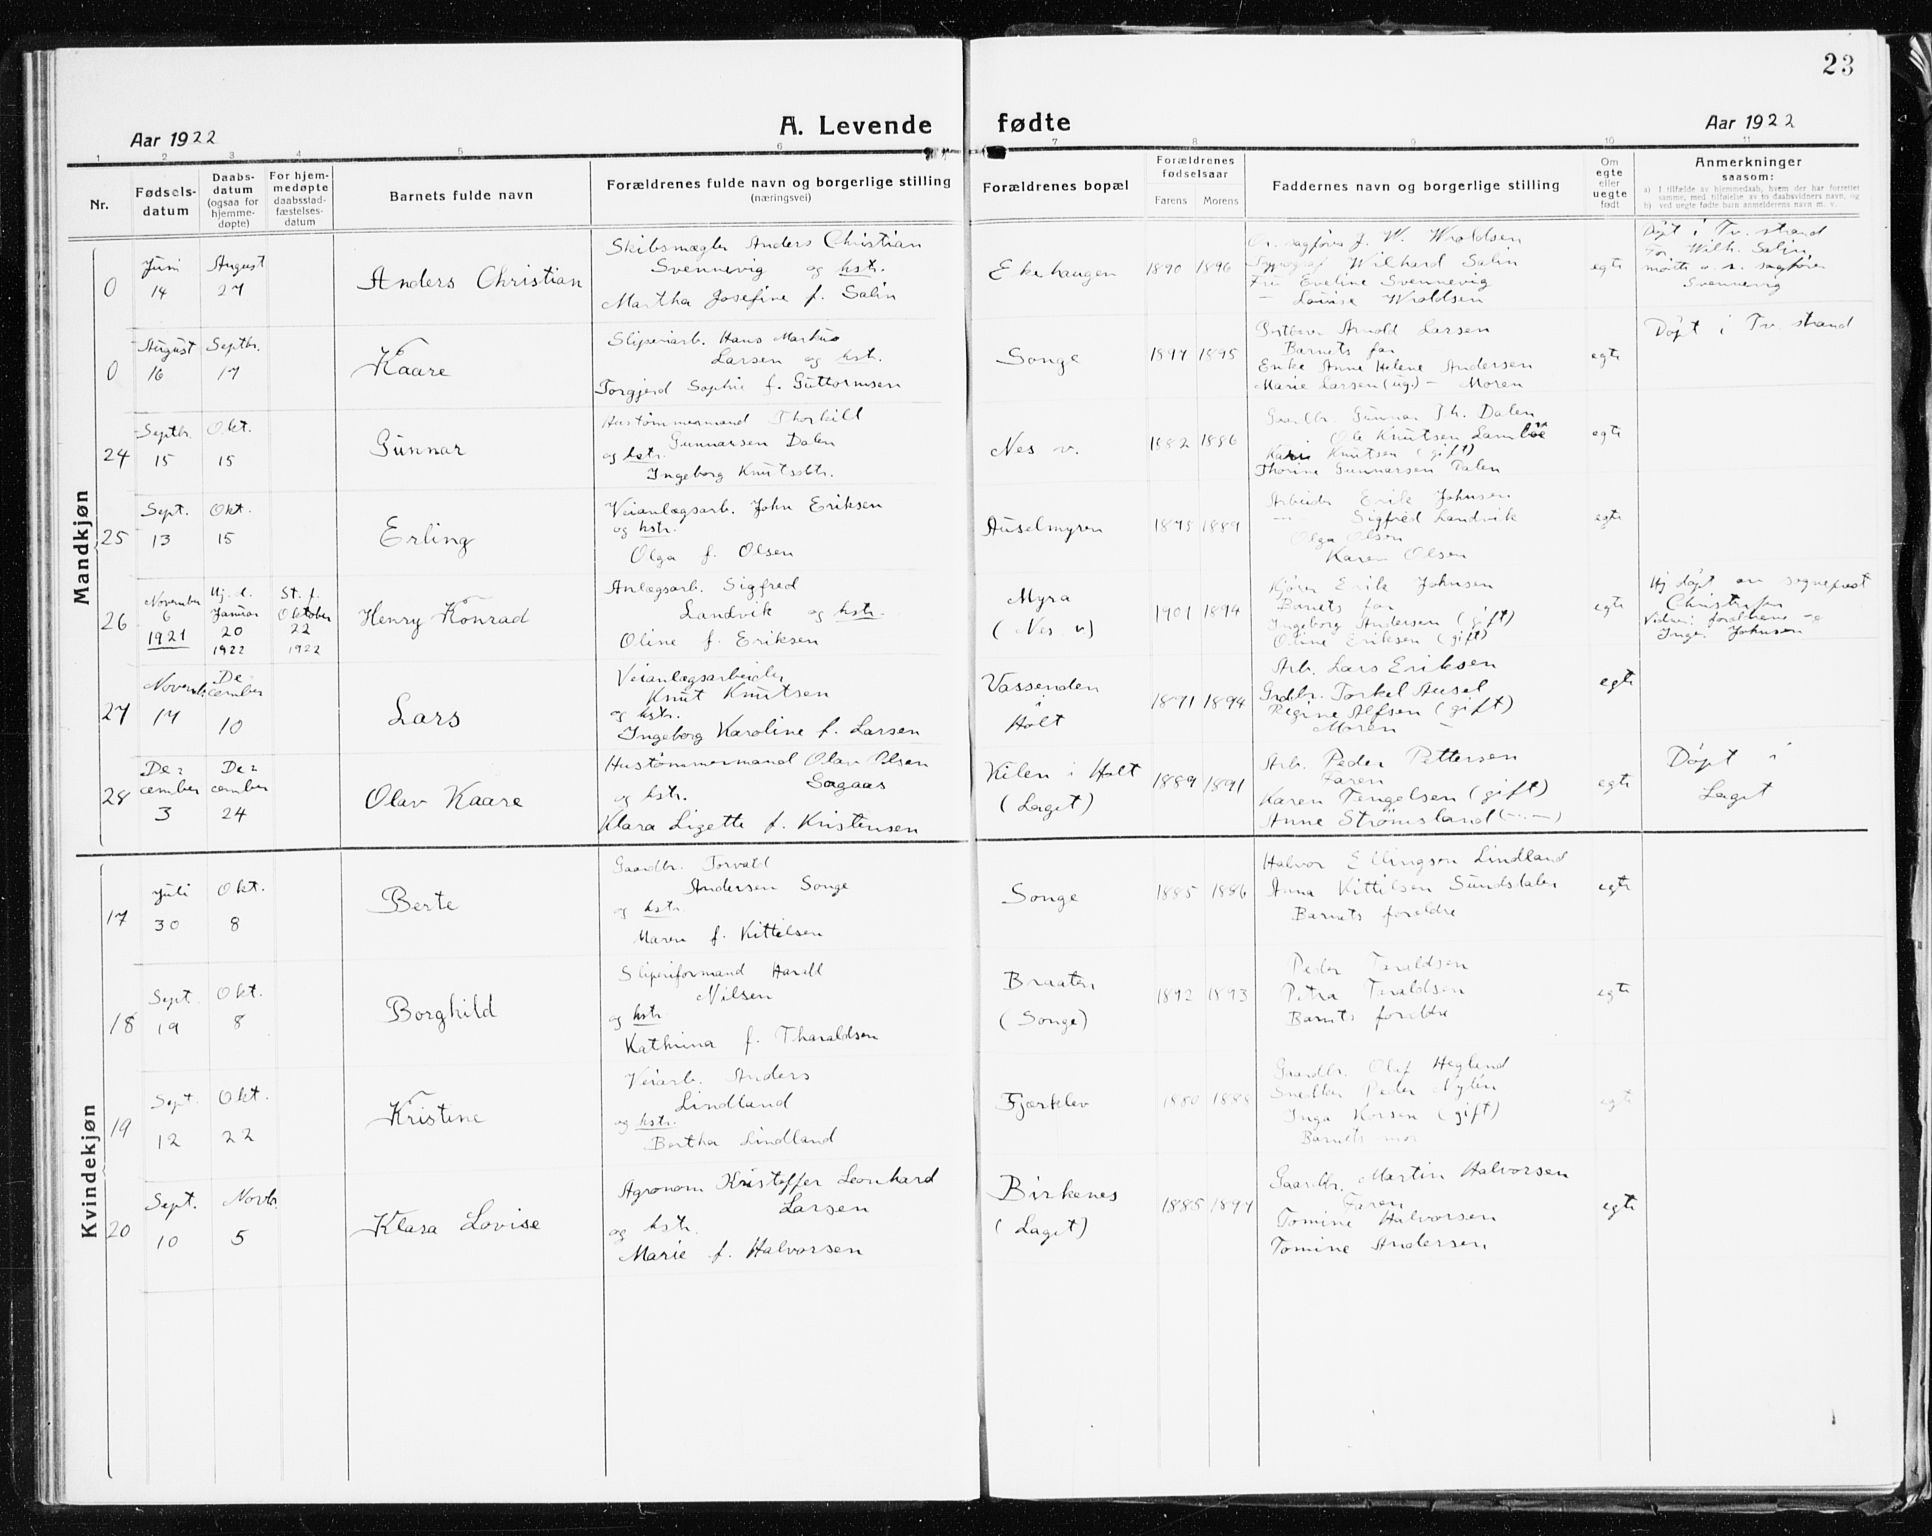 23
Aar 1922
A. Levende fødte
Aar 1922
1 2 3 4 5 6 7 8 9 10 11
Nr.
Fødsels-
datum
Daabs-
datum
(ogsaa for
hjemme-
døpte)
For hjem-
medøpte
daabsstad-
fæstelses-
datum
Barnets fulde navn
Forældrenes fulde navn og borgerlige stilling
(næringsvei)
Forældrenes bopæl
Forældrenes
fødselsaar
Farens Morens
Faddernes navn og borgerlige stilling
Om
egte
eller
uegte
født
Anmerkninger
saasom:
a) I tilfælde av hjemmedaab, hvem der har forrettet
samme, med tilføielse av to daabsvidners navn, og
b) ved uegte fødte barn anmelderens navn m. v.
Mandkjøn
0
Juni
14
August
27
Anders Christian
Skibsmægler Anders Christian
Svennevig og hstr.
Martha Josefine f. Salin
Ekehaugen
1890 1896
sagfører J. W. Wroldsen
Wilhard Salin
Fru Eveline Svennevig
— Lovise Wroldsen
egte
Døpt i Tv. strand
For Wilh. Salin
møtte o. r. sagfører
Svennevig
0
August
16
Septbr.
17
Kaare
Sliperiarb. Hans Markus
Larsen og hstr.
Torgjerd Sophie f. Guttormsen
Songe
1897 1895
Arnold Larsen
Barnets far
Enke Anne Helene Andersen
Marie Larsen (ug.) — Moren
egte
Døpt i Tv. strand
24
Septbr.
15
Okt.
15
Gunnar
Hustømmermand Thorkild
Gunnarsen Dalen
og hstr.
Ingeborg Knutsdtr.
Nes v.
1882 1886
Gaardbr. Gunnar Th. Dalen
Ole Knutsen
Knutsen (gift)
Thorine Gunnarsen Dalen
egte
25
Sept.
13
Okt.
15
Erling
Veianlægsarb. John Eriksen
og hstr.
Olga f. Olsen
Auselmyren
1895 1889
Arbeider Erik Johnsen
— Sigfred Landvik
Olga Olsen
Karen Olsen
egte
26
November
6
1921
Hj. d.
Januar
20
1922
St. f.
Oktober
22
1922
Henry Konrad
Anlægsarb. Sigfred
Landvik og hstr.
Oline f. Eriksen
Myra
(Nes v)
1901 1894
Erik Johnsen
Barnets far
Ingeborg Andersen (gift)
Oline Eriksen (gift)
egte
Hj døpt av sognepræst
Christefer
Vidner: forældrene og
Inge. Johnsen
27
Novemb.
17
De-
cember
10
Lars
Veianlægsarbeider
Knut Knutsen
og hstr.
Ingeborg Karoline f. Larsen
Vassenden
i
Holt
1891 1894
Arb. Lars Eriksen
Grdbr. Torkel Ausel
Regine Alfsen (gift)
Moren
egte
28
De=
cember
3
De=
cember
24
Olav Kaare
Hustømmermand Olav Olsen
Sagaas
og hstr.
Klara Lizette f. Kristensen
Kilen i Holt
(Laget)
1889 1891
Arb. Peder Pettersen
Faren
Karen Tengelsen (gift)
Anne Strømsland (—„—)
egte
Døpt i
Laget
Kvindekjøn
17
Juli
30
Okt.
8
Berte
Gaardbr. Torvald
Andersen Songe
og hstr.
Maren f. Kittilsen
Songe
1885 1886
Halvor Ellingsen Lindland
Anna Kittilsen Sundsdalen
Barnets forældre
egte
18
Sept.
19
Okt.
8
Borghild
Sliperiformand Harald
Nilsen
og hstr.
Kathrina f. Tharaldsen
Braaten
(Songe)
1892 1893
Peder Taraldsen
Petra Taraldsen
Barnets forældre
egte
19
Sept.
12
Okt.
22
Kristine
Veiarb. Anders
Lindland
og hstr.
Berthe Lindland
Fjærklev
1880 1888
Gaardbr. Olaf Hegland
Snedker Peder Nylén
Inga Korsen (gift)
Barnets mor
egte
20
Sept.
10
Novbr.
5
Klara Lovise
Agronom Kristoffer Leonhard
Larsen
og hstr.
Marie f. Halvorsen
Birkenes
(Laget)
1885 1897
Gaardbr. Martin Halvorsen
Faren
Tomine Halvorsen
Tomine Andersen
egte